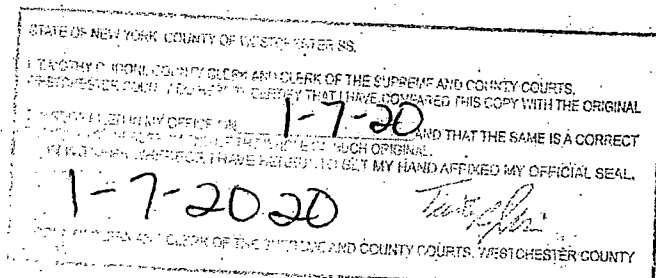 STATE OF NEW YORK COUNTY OF WESTCHESTER SS.
I, TIMOTHY C. IDONI, COUNTY CLERK AND CLERK OF THE SUPREME AND COUNTY COURTS,
WESTCHESTER COUNTY DO HEREBY CERTIFY THAT I HAVE COMPARED THIS COPY WITH THE ORIGINAL
FILED IN MY OFFICE ON 1-7-20 AND THAT THE SAME IS A CORRECT
SUCH ORIGINAL.
WHEREOF, I HAVE HEREUNTO SET MY HAND AFFIXED MY OFFICIAL SEAL.
1-7-2020
CLERK OF THE SUPREME AND COUNTY COURTS, WESTCHESTER COUNTY